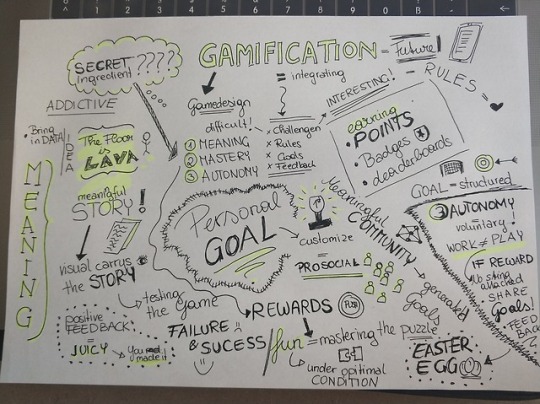 SECRET
Ingredient
????
GAMIFICATION = Future!
ADDICTIVE
Gamedesign
difficult!
① MEANING
② MASTERY
③ AUTONOMY
= integrating
x Challengen
x Rules
x Goals
x Feedback
INTERESTING! - RULES =
earning
POINTS
• Badges
• Leaderboards
• Bring
in DATA
IDEA
The Floor
is
LAVA
MEANING
meaningful
STORY!
visual carrys
the STORY
Personal
GOAL
customize
Meaningful
COMMUNITY
GOAL = structured
③ AUTONOMY
= voluntary!
WORK ≠ PLAY
IF REWARD
attached
SHARE
Goals!
FEED
BACK
PROSOCIAL
generated
Goals
testing
the Game
positive
FEEDBACK
= JUICY
You
made it!
FAILURE
& SUCESS
REWARDS
FUN
fun = mastering the puzzle
under opitimal
CONDITION
EASTER
EGG